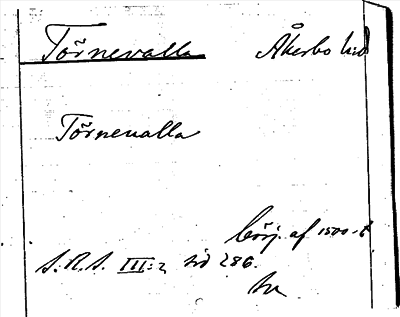 Törnevalla Åkerbo hd
Törnevalla
börj. af 1500-t
S.R.S. III:2 sid 286.